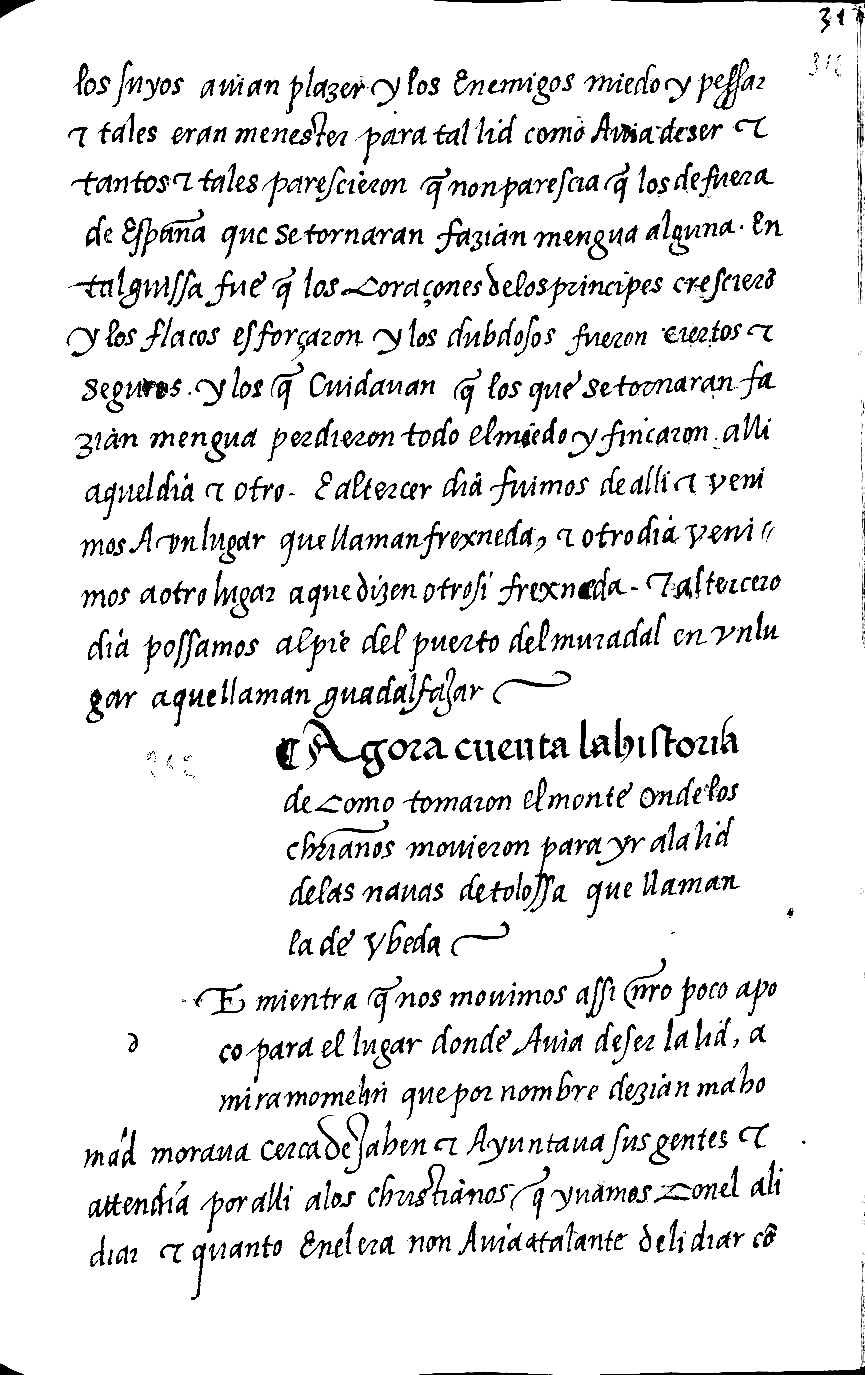 31
316
los suyos auian plazer y los Enemigos miedo y pessar
τ tales eran menester para tal lid como Auia de ser τ
tantos τ tales parescieron q̃ non parescia q̃ los de fuera
de España que se tornaran fazian mengua alguna. En
tal guissa fue q̃ los Coraçones de los principes crescierõ
y los flacos esforçaron y los dubdosos fueron ciertos τ
seguros. y los q̃ Cuidauan q̃ los que se tornaran fa
zian mengua perdieron todo el miedo y fincaron alli
aquel dia τ otro. E al tercer dia fuimos de alli τ veni
mos A vn lugar que llaman frexneda, τ otro dia veni〃
mos a otro lugar a que dizen otrosi frexneda. τ al tercero
dia possamos al pie del puerto del muradal en vn lu
gar a que llaman guadalfazar
¶ Agora cuenta la historia
de Como tomaron el monte Onde los
chrianos mouieron para yr a la lid
de las nauas de tolossa que llaman
la de Vbeda
E mientra q̃ nos mouimos assi nr̃o poco a po
d
co para el lugar donde Auia de ser la lid, a
miramomelin que por nombre dezian maho
mad moraua Cerca de Jahen τ Ayuntaua sus gentes τ
attendia por alli a los christianos q̃ yuamos Con el a li
diar τ quanto En el era non Auia atalante de lidiar cõ